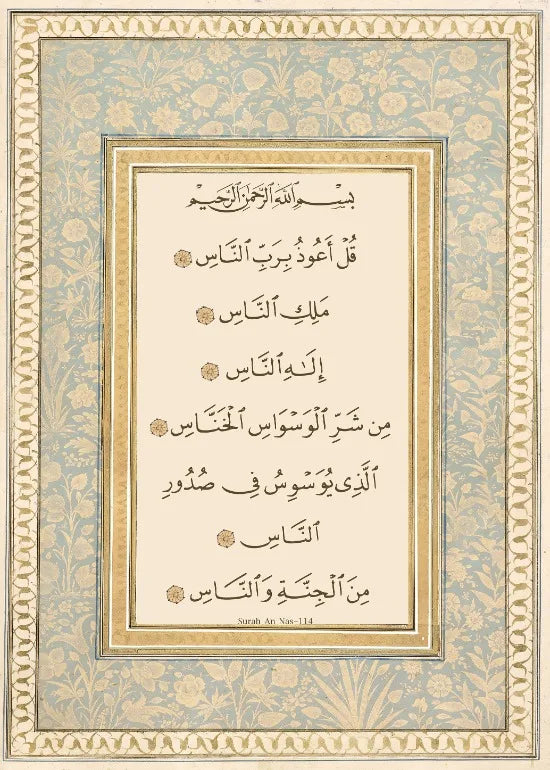 بِسْمِ اللَّهِ الرَّحْمَٰنِ الرَّحِيمِ
قُلۡ أَعُوذُ بِرَبِّ ٱلنَّاسِ
مَلِكِ ٱلنَّاسِ
إِلَٰهِ ٱلنَّاسِ
مِن شَرِّ ٱلۡوَسۡوَاسِ ٱلۡخَنَّاسِ
ٱلَّذِي يُوَسۡوِسُ فِي صُدُورِ
ٱلنَّاسِ
مِنَ ٱلۡجِنَّةِ وَٱلنَّاسِ
Surah An Nas-114